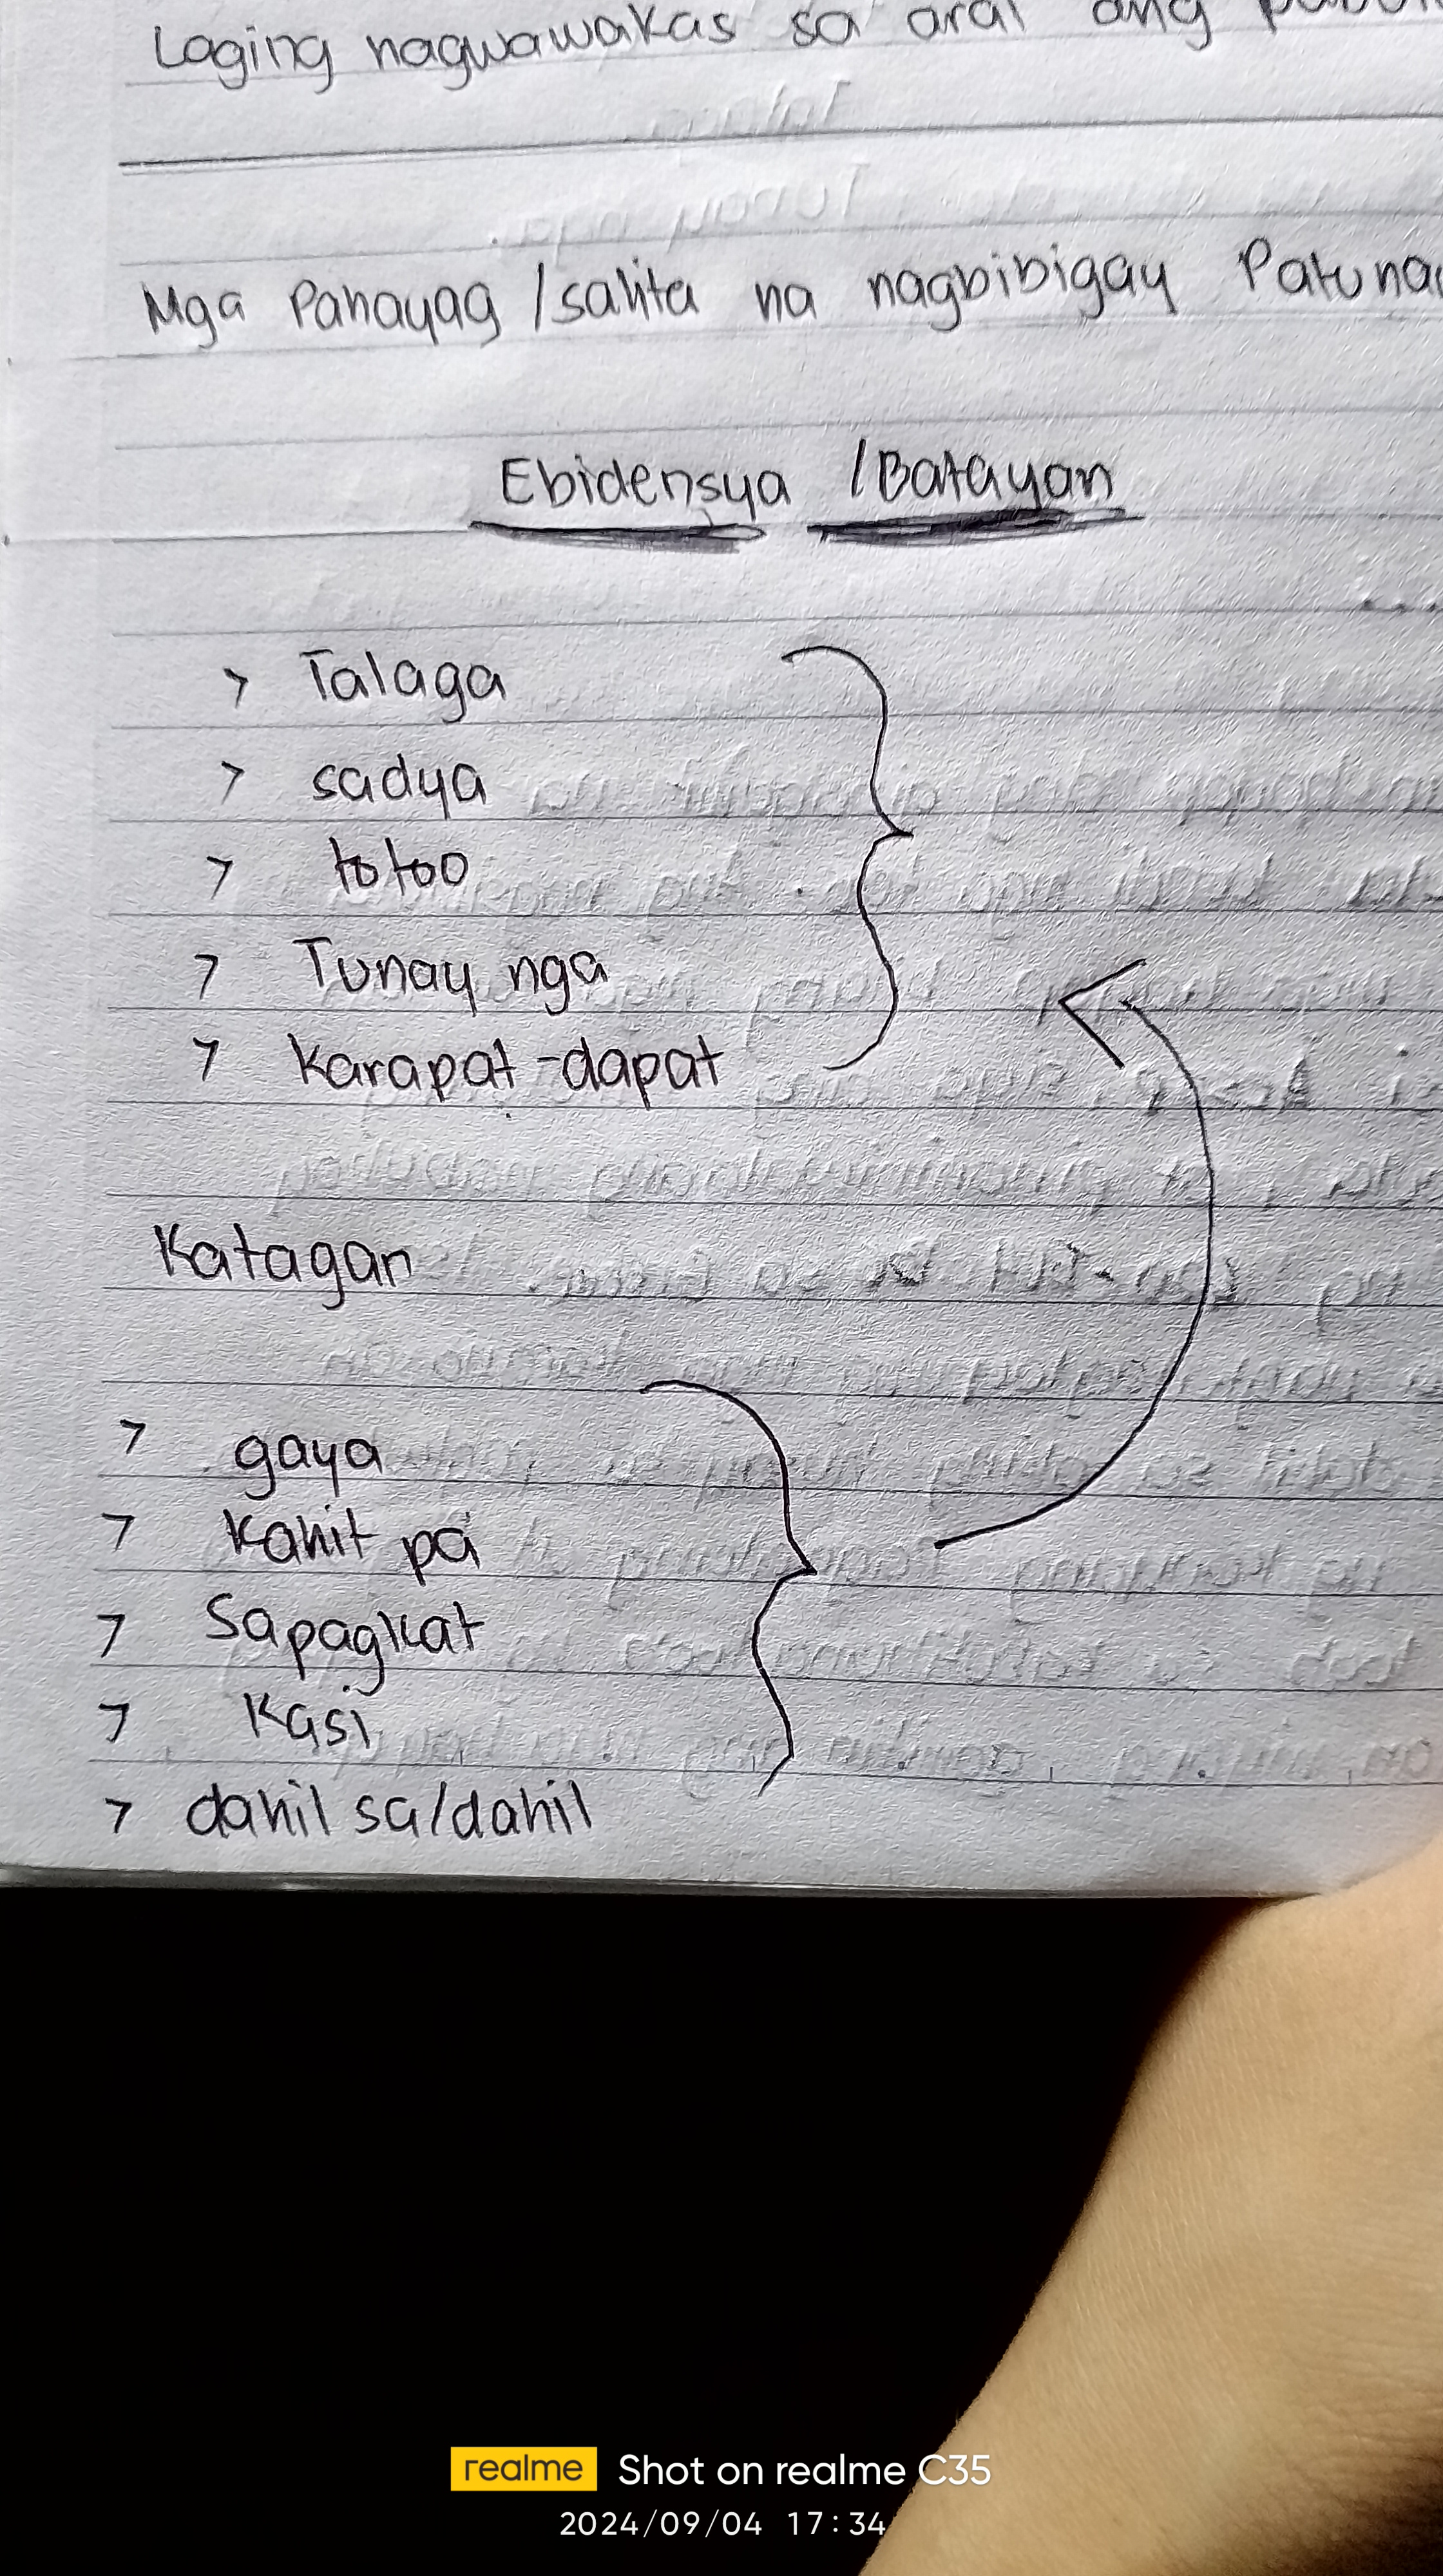 Laging nagwawakas sa aral ang
Mga Pahayag / salita na nagbibigay
Ebidensya / Batayan
> Talaga
> sadya
> totoo
> Tunay nga
> karapat-dapat
Katagan
> gaya
> kahit pa
> Sapagkat
> Kasi
> dahil sa/dahil
realme Shot on realme C35
2024/09/04 17:34